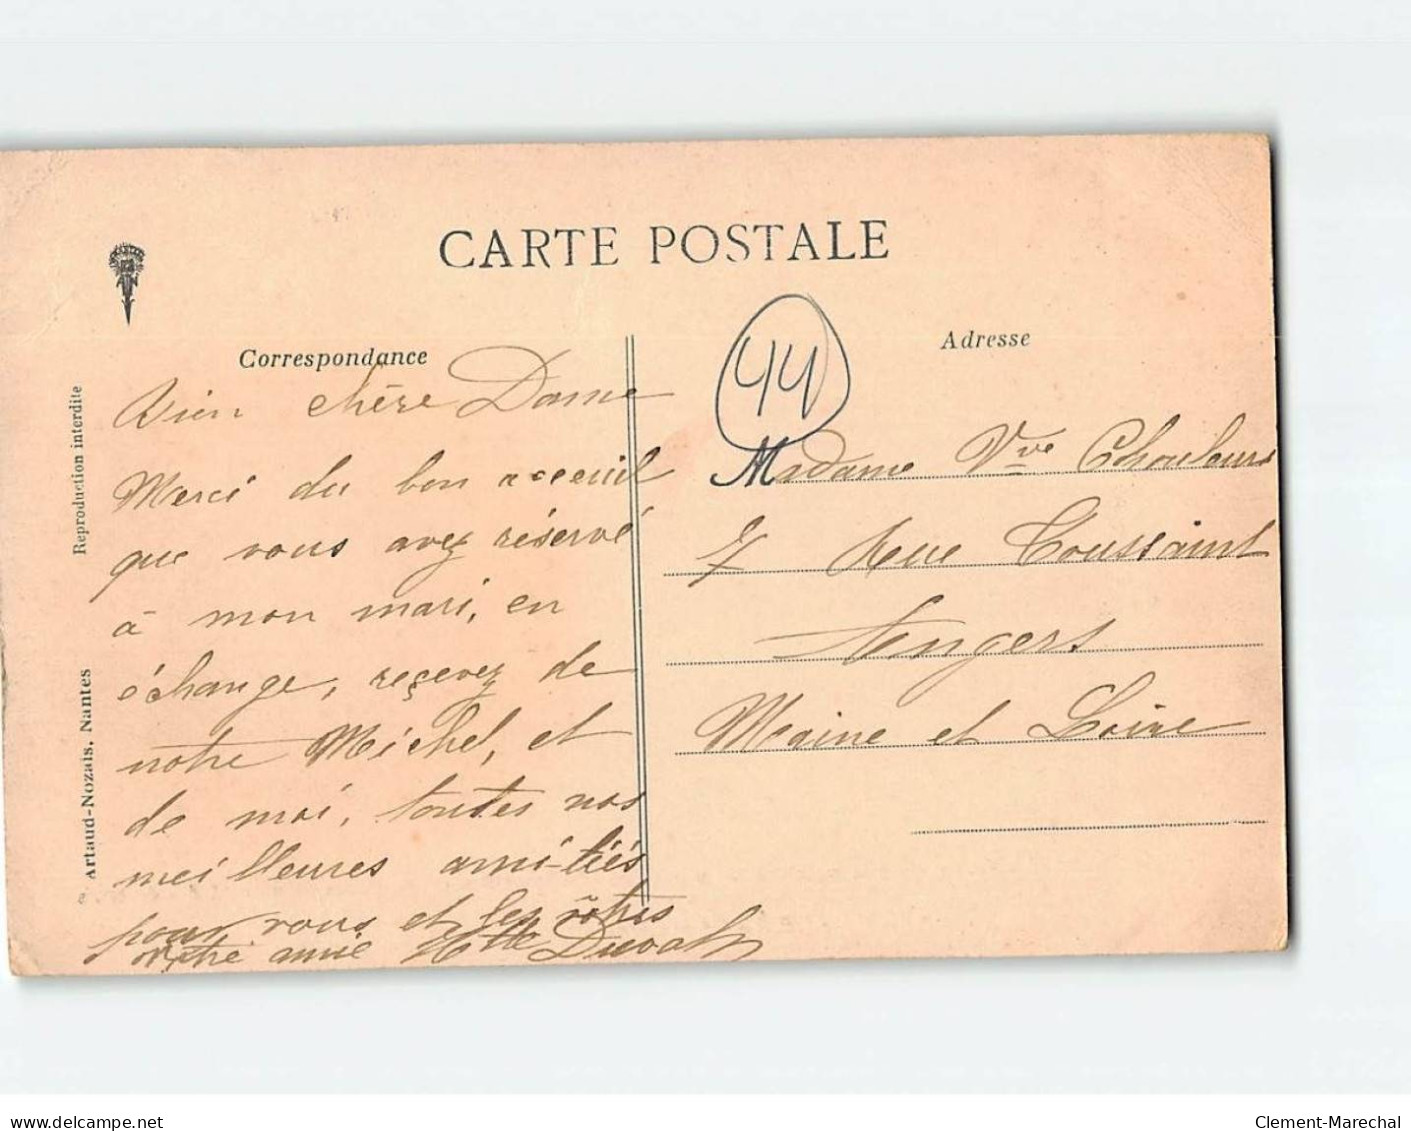 CARTE POSTALE
Correspondance
Bien chère Dame
Merci du bon acceuil
que vous avez réservé
à mon mari, en
échange, reçevez de
notre Michel, et
de moi, toutes nos
meilleures amitiés
pour vous et les vôtres
votre amie Duval
Adresse
44
Madame Vve
7 Rue Toussaint
Angers
Maine et Loire
Reproduction interdite
Artaud-Nozais, Nantes
delcampe.net
Clement-Marechal